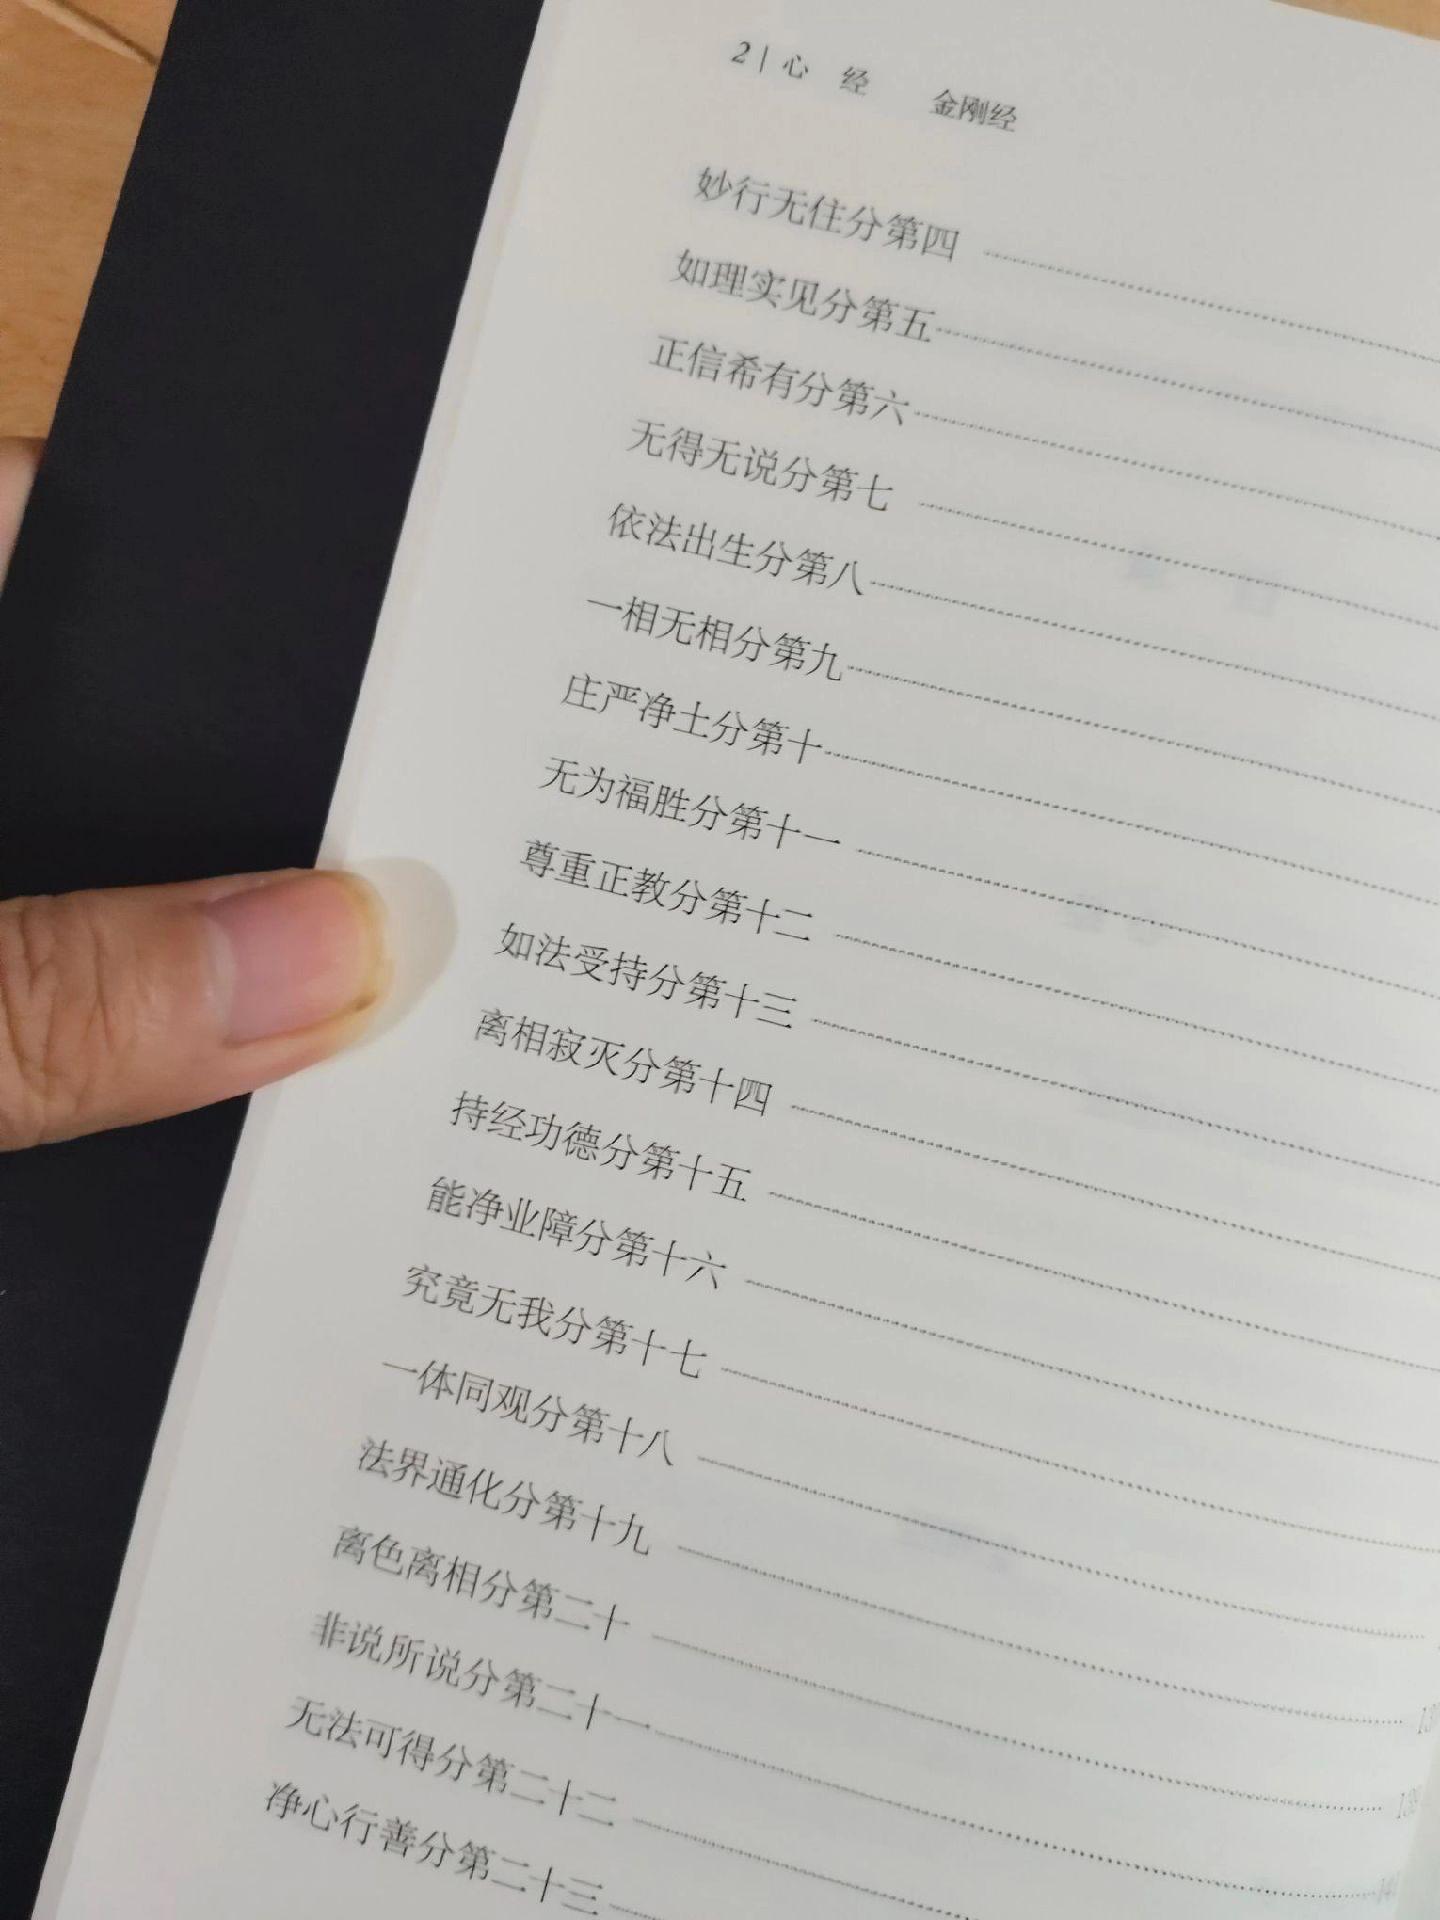 2 | 心 经 金刚经
妙行无住分第四
如理实见分第五
正信希有分第六
无得无说分第七
依法出生分第八
一相无相分第九
庄严净土分第十
无为福胜分第十一
尊重正教分第十二
如法受持分第十三
离相寂灭分第十四
持经功德分第十五
能净业障分第十六
究竟无我分第十七
一体同观分第十八
法界通化分第十九
离色离相分第二十
非说所说分第二十一
无法可得分第二十二
净心行善分第二十三